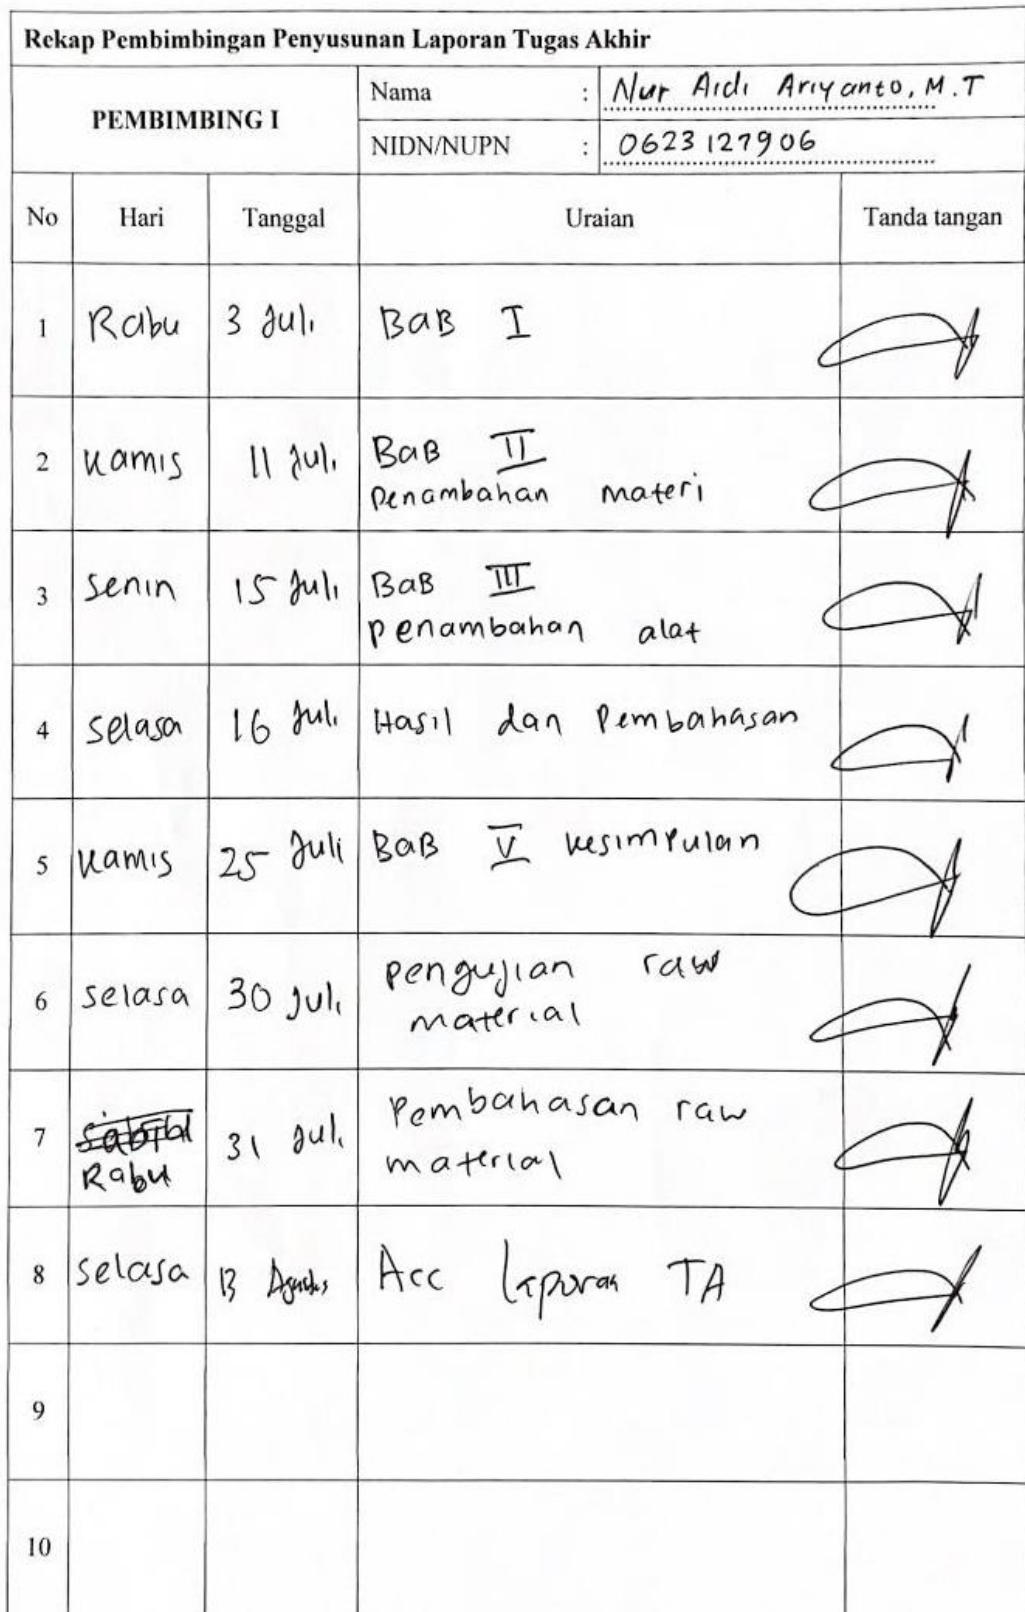 Rekap Pembimbingan Penyusunan Laporan Tugas Akhir
PEMBIMBING I
Nama : Nur Aidi Ariyanto, M.T
NIDN/NUPN : 0623127906
No Hari Tanggal Uraian Tanda tangan
1 Rabu 3 Juli BaB I
2 Kamis 11 Juli BaB II
Penambahan materi
3 Senin 15 Juli BaB III
penambahan alat
4 Selasa 16 Juli Hasil dan Pembahasan
5 Kamis 25 Juli BaB V kesimpulan
6 Selasa 30 Juli pengujian raw
material
7 31 Juli Pembahasan raw
Rabu material
8 Selasa 13 Agustus Acc Laporan TA
9
10